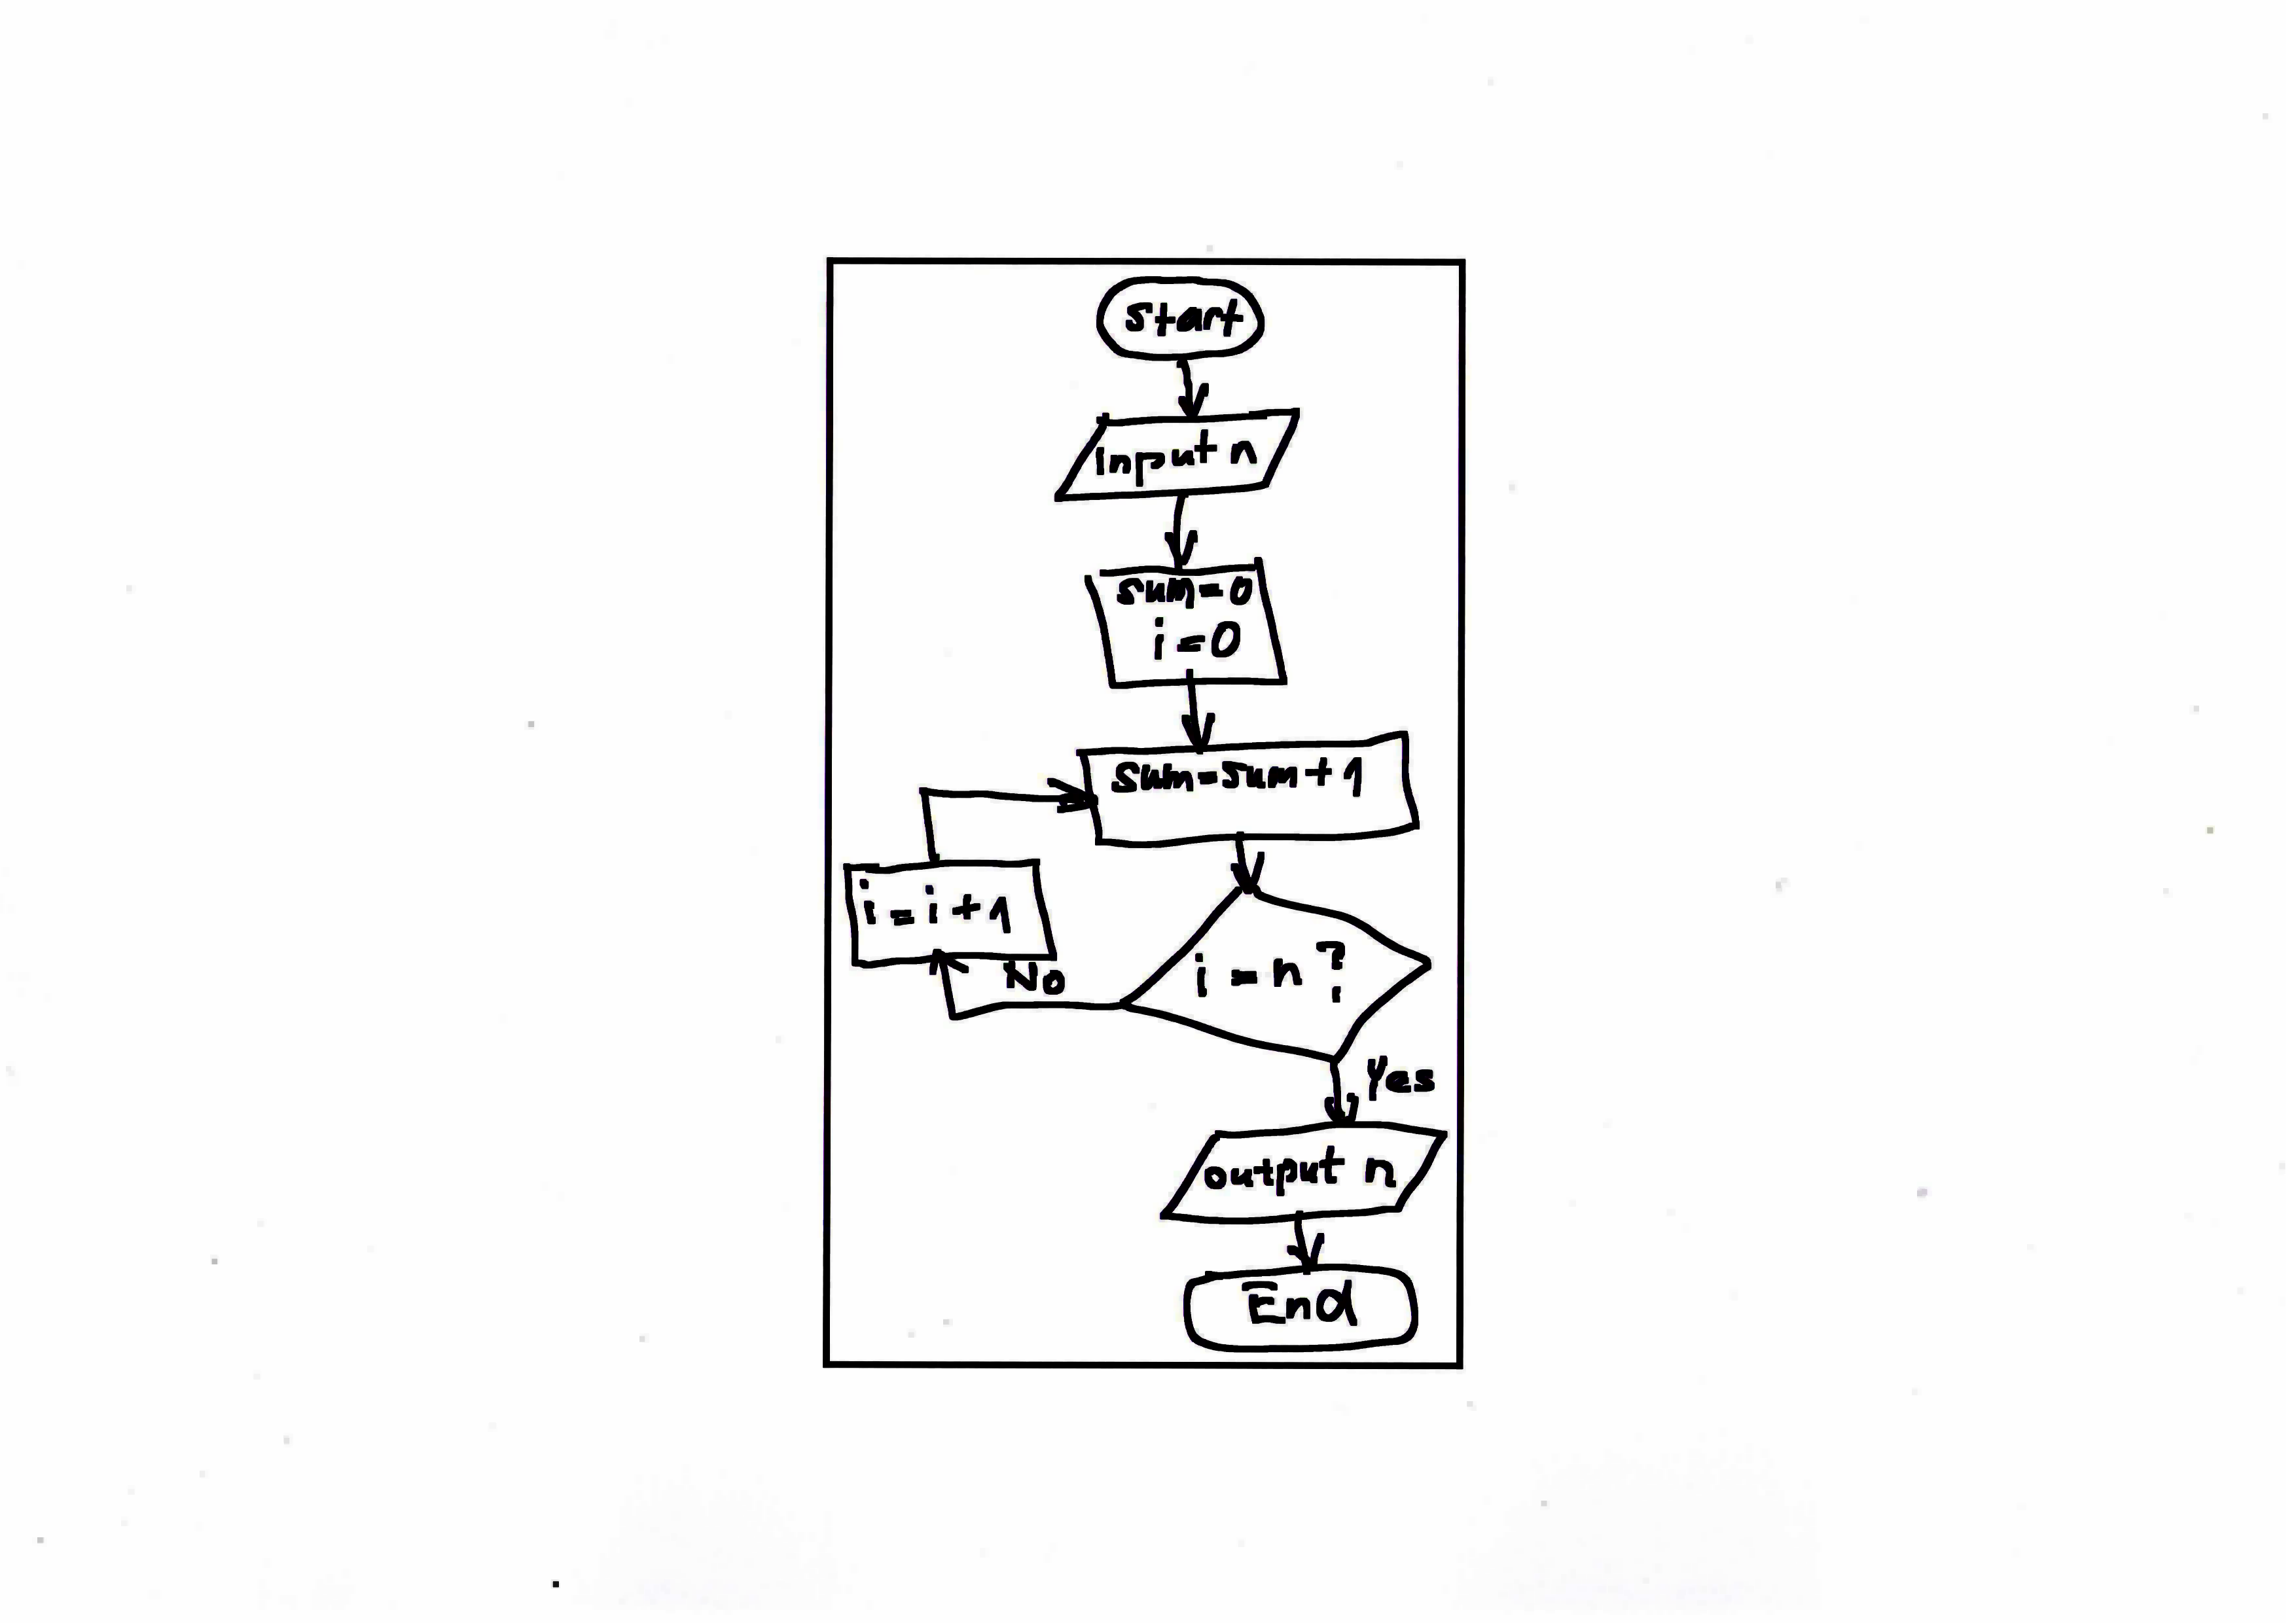 start
input n
sum=0
i=0
sum=sum+1
i=i+1
No
i=n?
Yes
output n
End